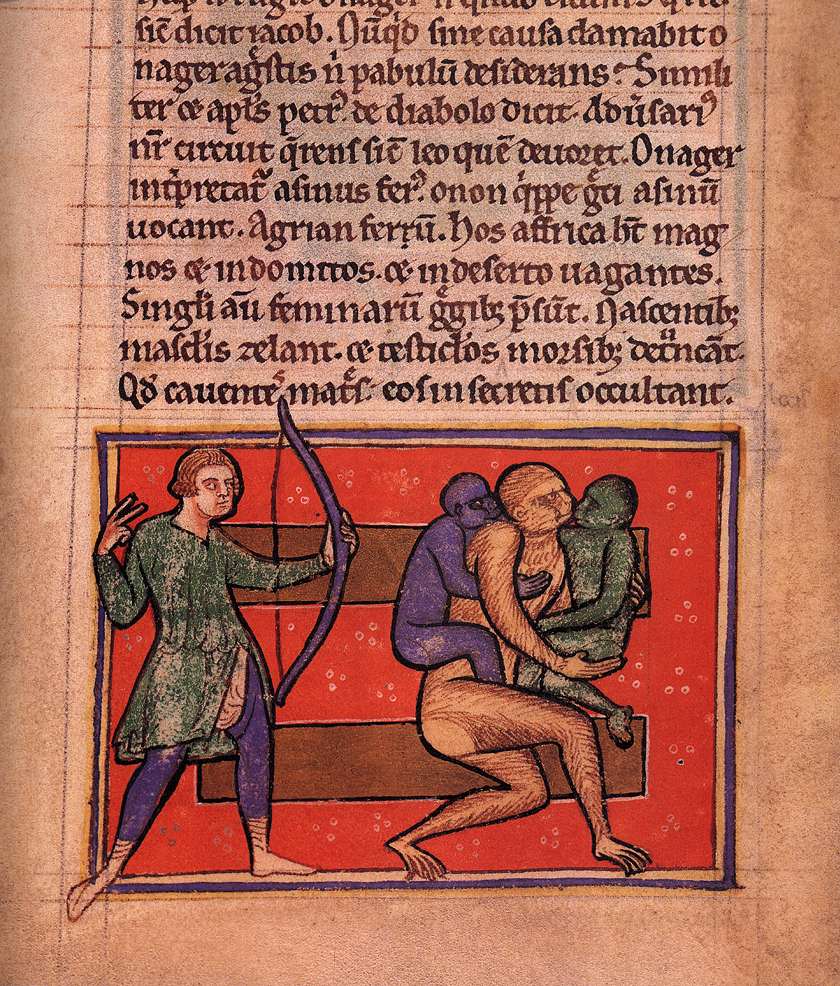 sic̄ dicit iacob. Nūqͥd sine causa clamabit o
nager agͤstis n̄ pabulū desiderans? Simili
ter ⁊ apl̄s petrꝰ de diabolo dicit. Adūsariꝰ
nr̄ circuit q̄rens sic̄ leo quē deuoret. Onager
int̄pretat᷑ asinus ferꝰ. onon qͥppe gͤci asinū
uocant. Agrian ferū. hos affrica ht̄ mag
nos ⁊ indomitos. ⁊ in deserto uagantes.
Singl̄i aū feminarū gͤgibꝫ p̄sūt. Nascentibꝫ
mascl̄is zelant. ⁊ testicl̄os morsibꝫ detͧncāt.
Qd̄ cauentes mat̄s. eos in secretis occultant.